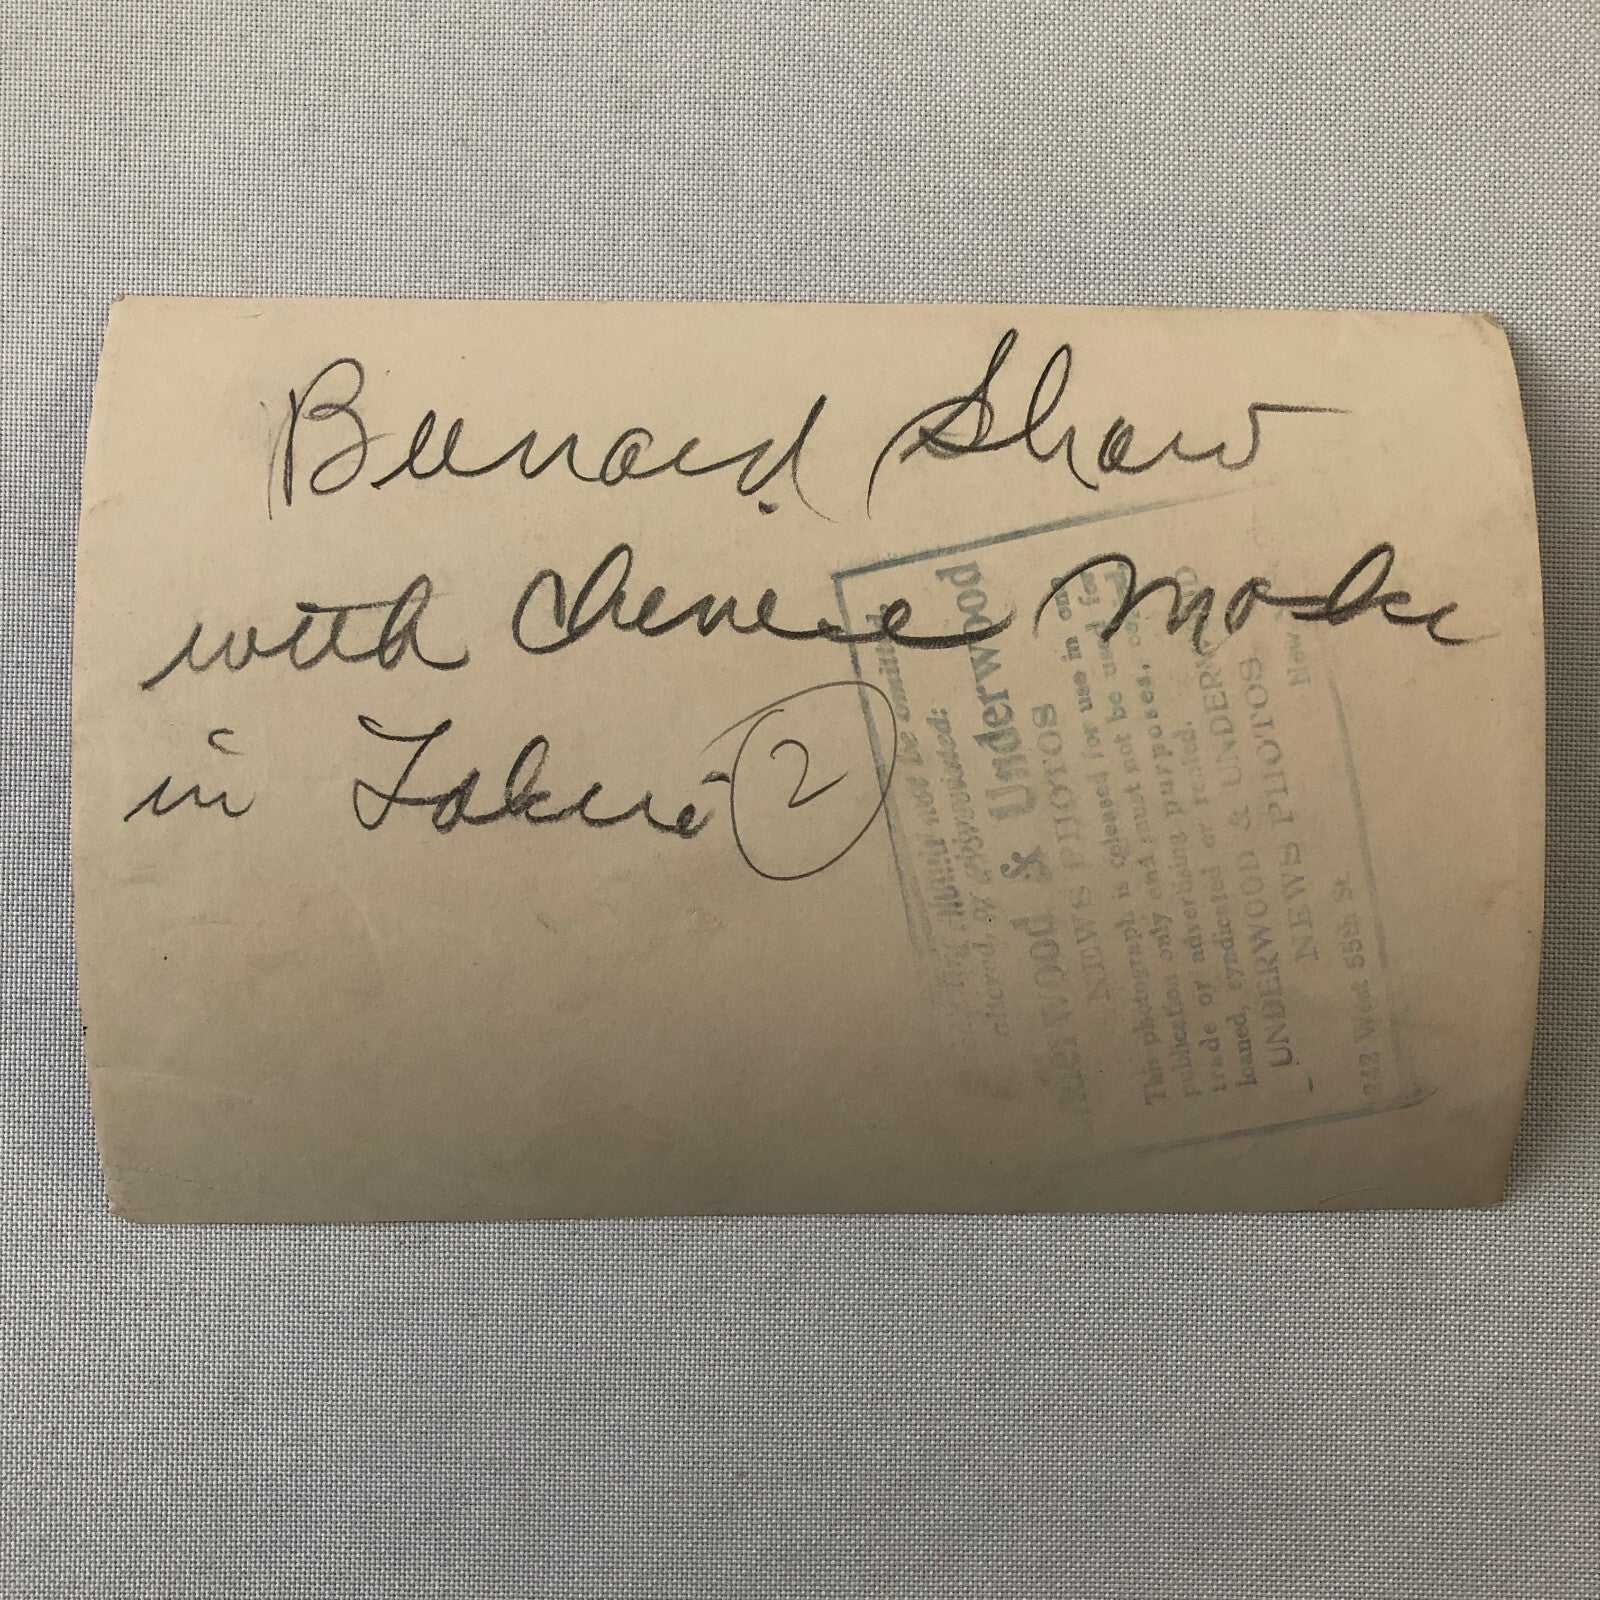 Bernard Shaw
with Chinese Maske
in
2
this credit must be omitted,
altered, or
Underwood & Underwood
NEWS PHOTOS
This photograph is released for use in one
publication only and must not be used for
trade or advertising purposes,
loaned, syndicated or resold.
UNDERWOOD & UNDERWOOD
NEWS PHOTOS
242 West 55th St New